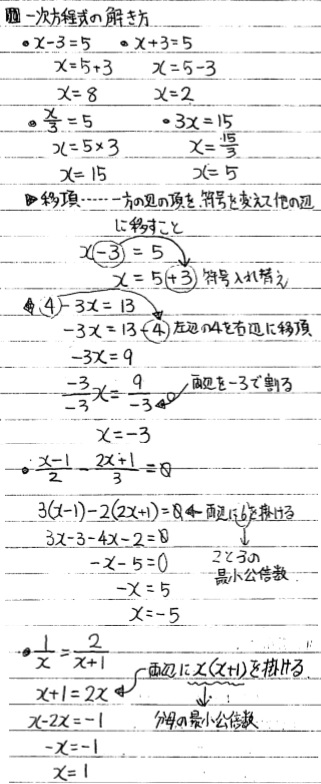 一次方程式の解き方
• x-3=5 • x+3=5
x=5+3 x=5-3
x=8 x=2
• x/3=5 • 3x=15
x=5×3 x=15/3
x=15 x=5
▶移項……一方の辺の項を、符号を変えて他の辺
に移すこと
x-3=5
x=5+3 符号入れ替え
4-3x=13
-3x=13-4 左辺の4を右辺に移項
-3x=9
-3/-3 x=9/-3 両辺を-3で割る
x=-3
• x-1/2-2x+1/3=0
3(x-1)-2(2x+1)=0←両辺に6を掛ける
3x-3-4x-2=0
-x-5=0 2と3の
最小公倍数
-x=5
x=-5
• 1/x=2/x+1
両辺にx(x+1)を掛ける
x+1=2x
x-2x=-1 分母の最小公倍数
-x=-1
x=1